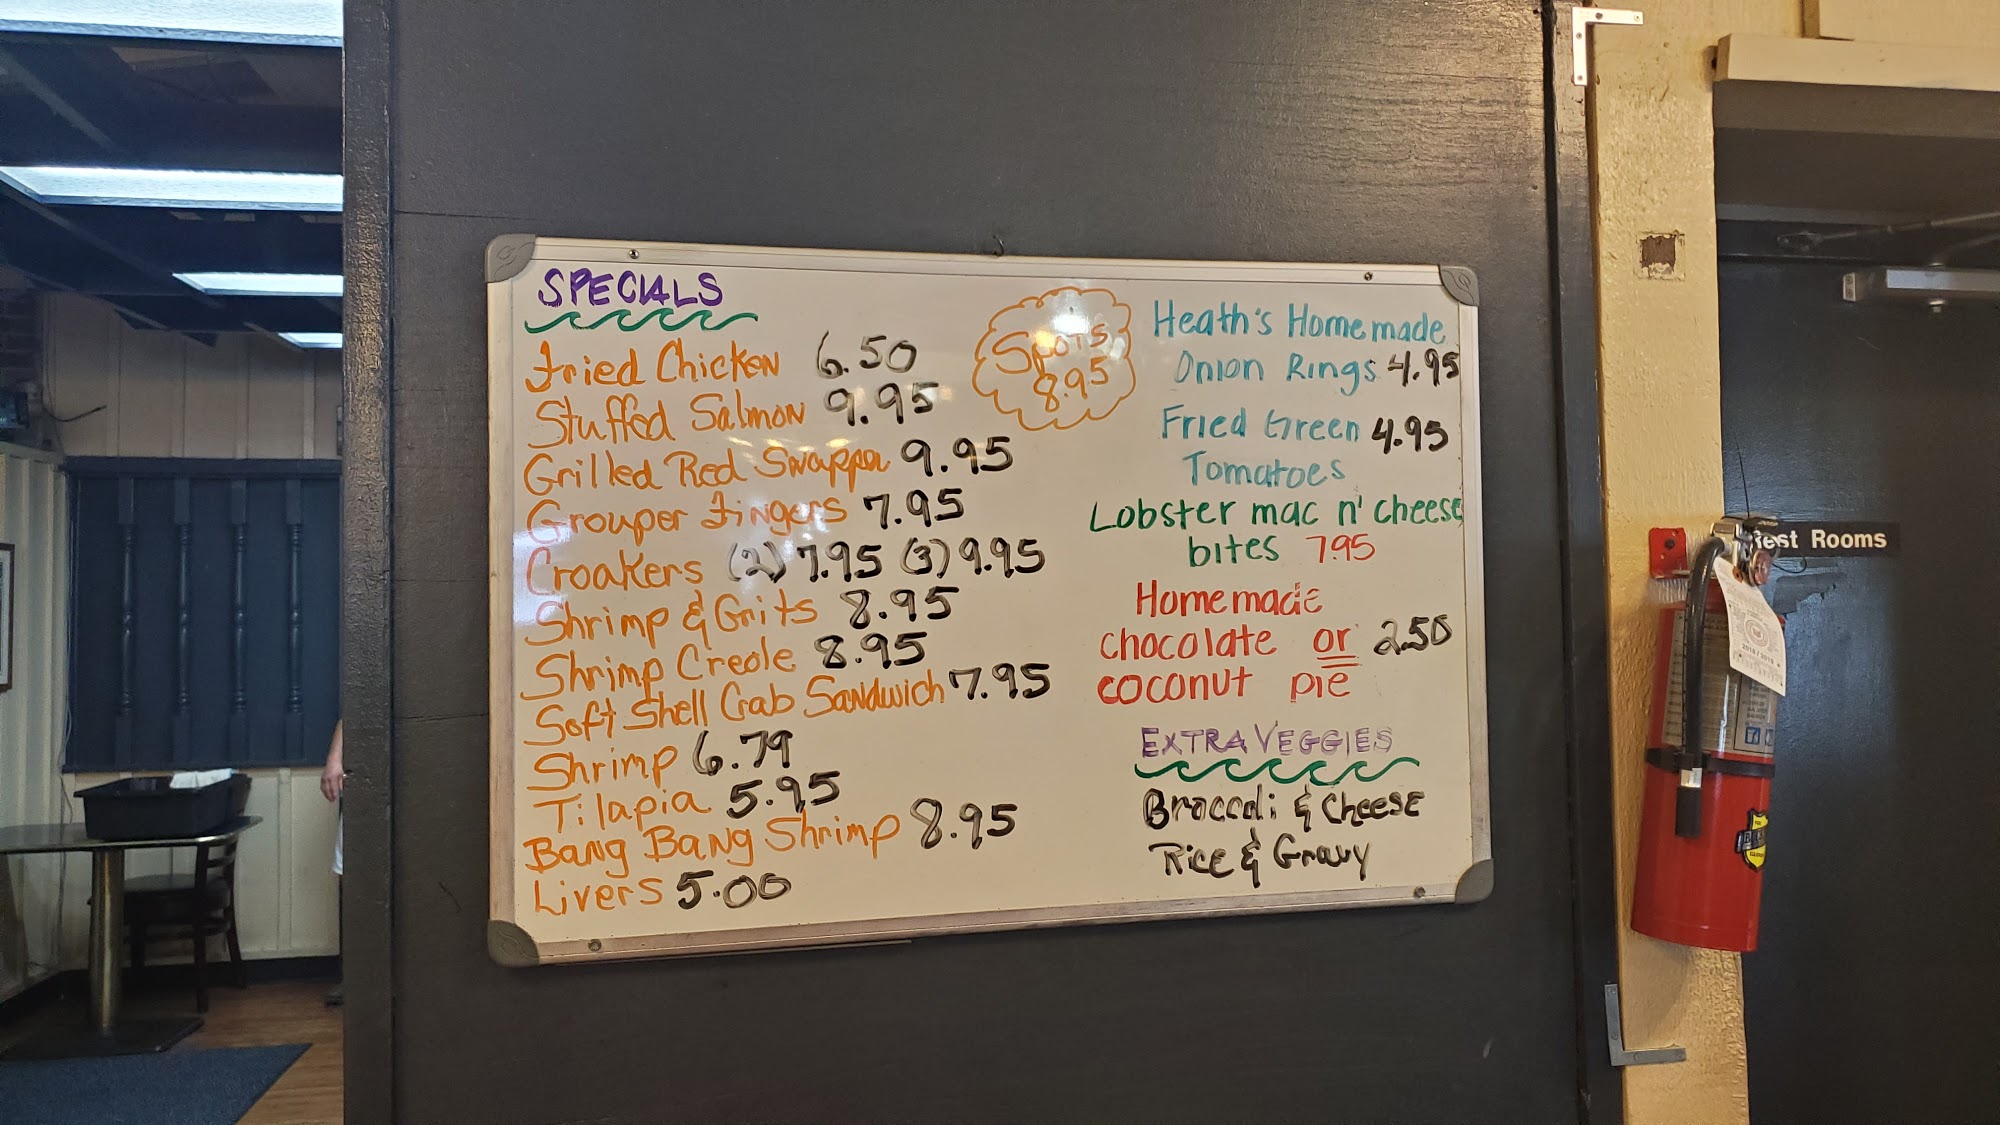 SPECIALS
Fried Chicken 6.50
Stuffed Salmon 9.95
Grilled Red Snapper 9.95
Grouper Fingers 7.95
Croakers (2) 7.95 (3) 9.95
Shrimp & Grits 8.95
Shrimp Creole 8.95
Soft Shell Crab Sandwich 7.95
Shrimp 6.79
Tilapia 5.95
Bang Bang Shrimp 8.95
Livers 5.00
Spots
8.95
Heath's Homemade
Onion Rings 4.95
Fried Green 4.95
Tomatoes
Lobster mac n' cheese
bites 7.95
Homemade
chocolate or 2.50
coconut pie
EXTRA VEGGIES
Broccoli & Cheese
Rice & Gravy
Rest Rooms